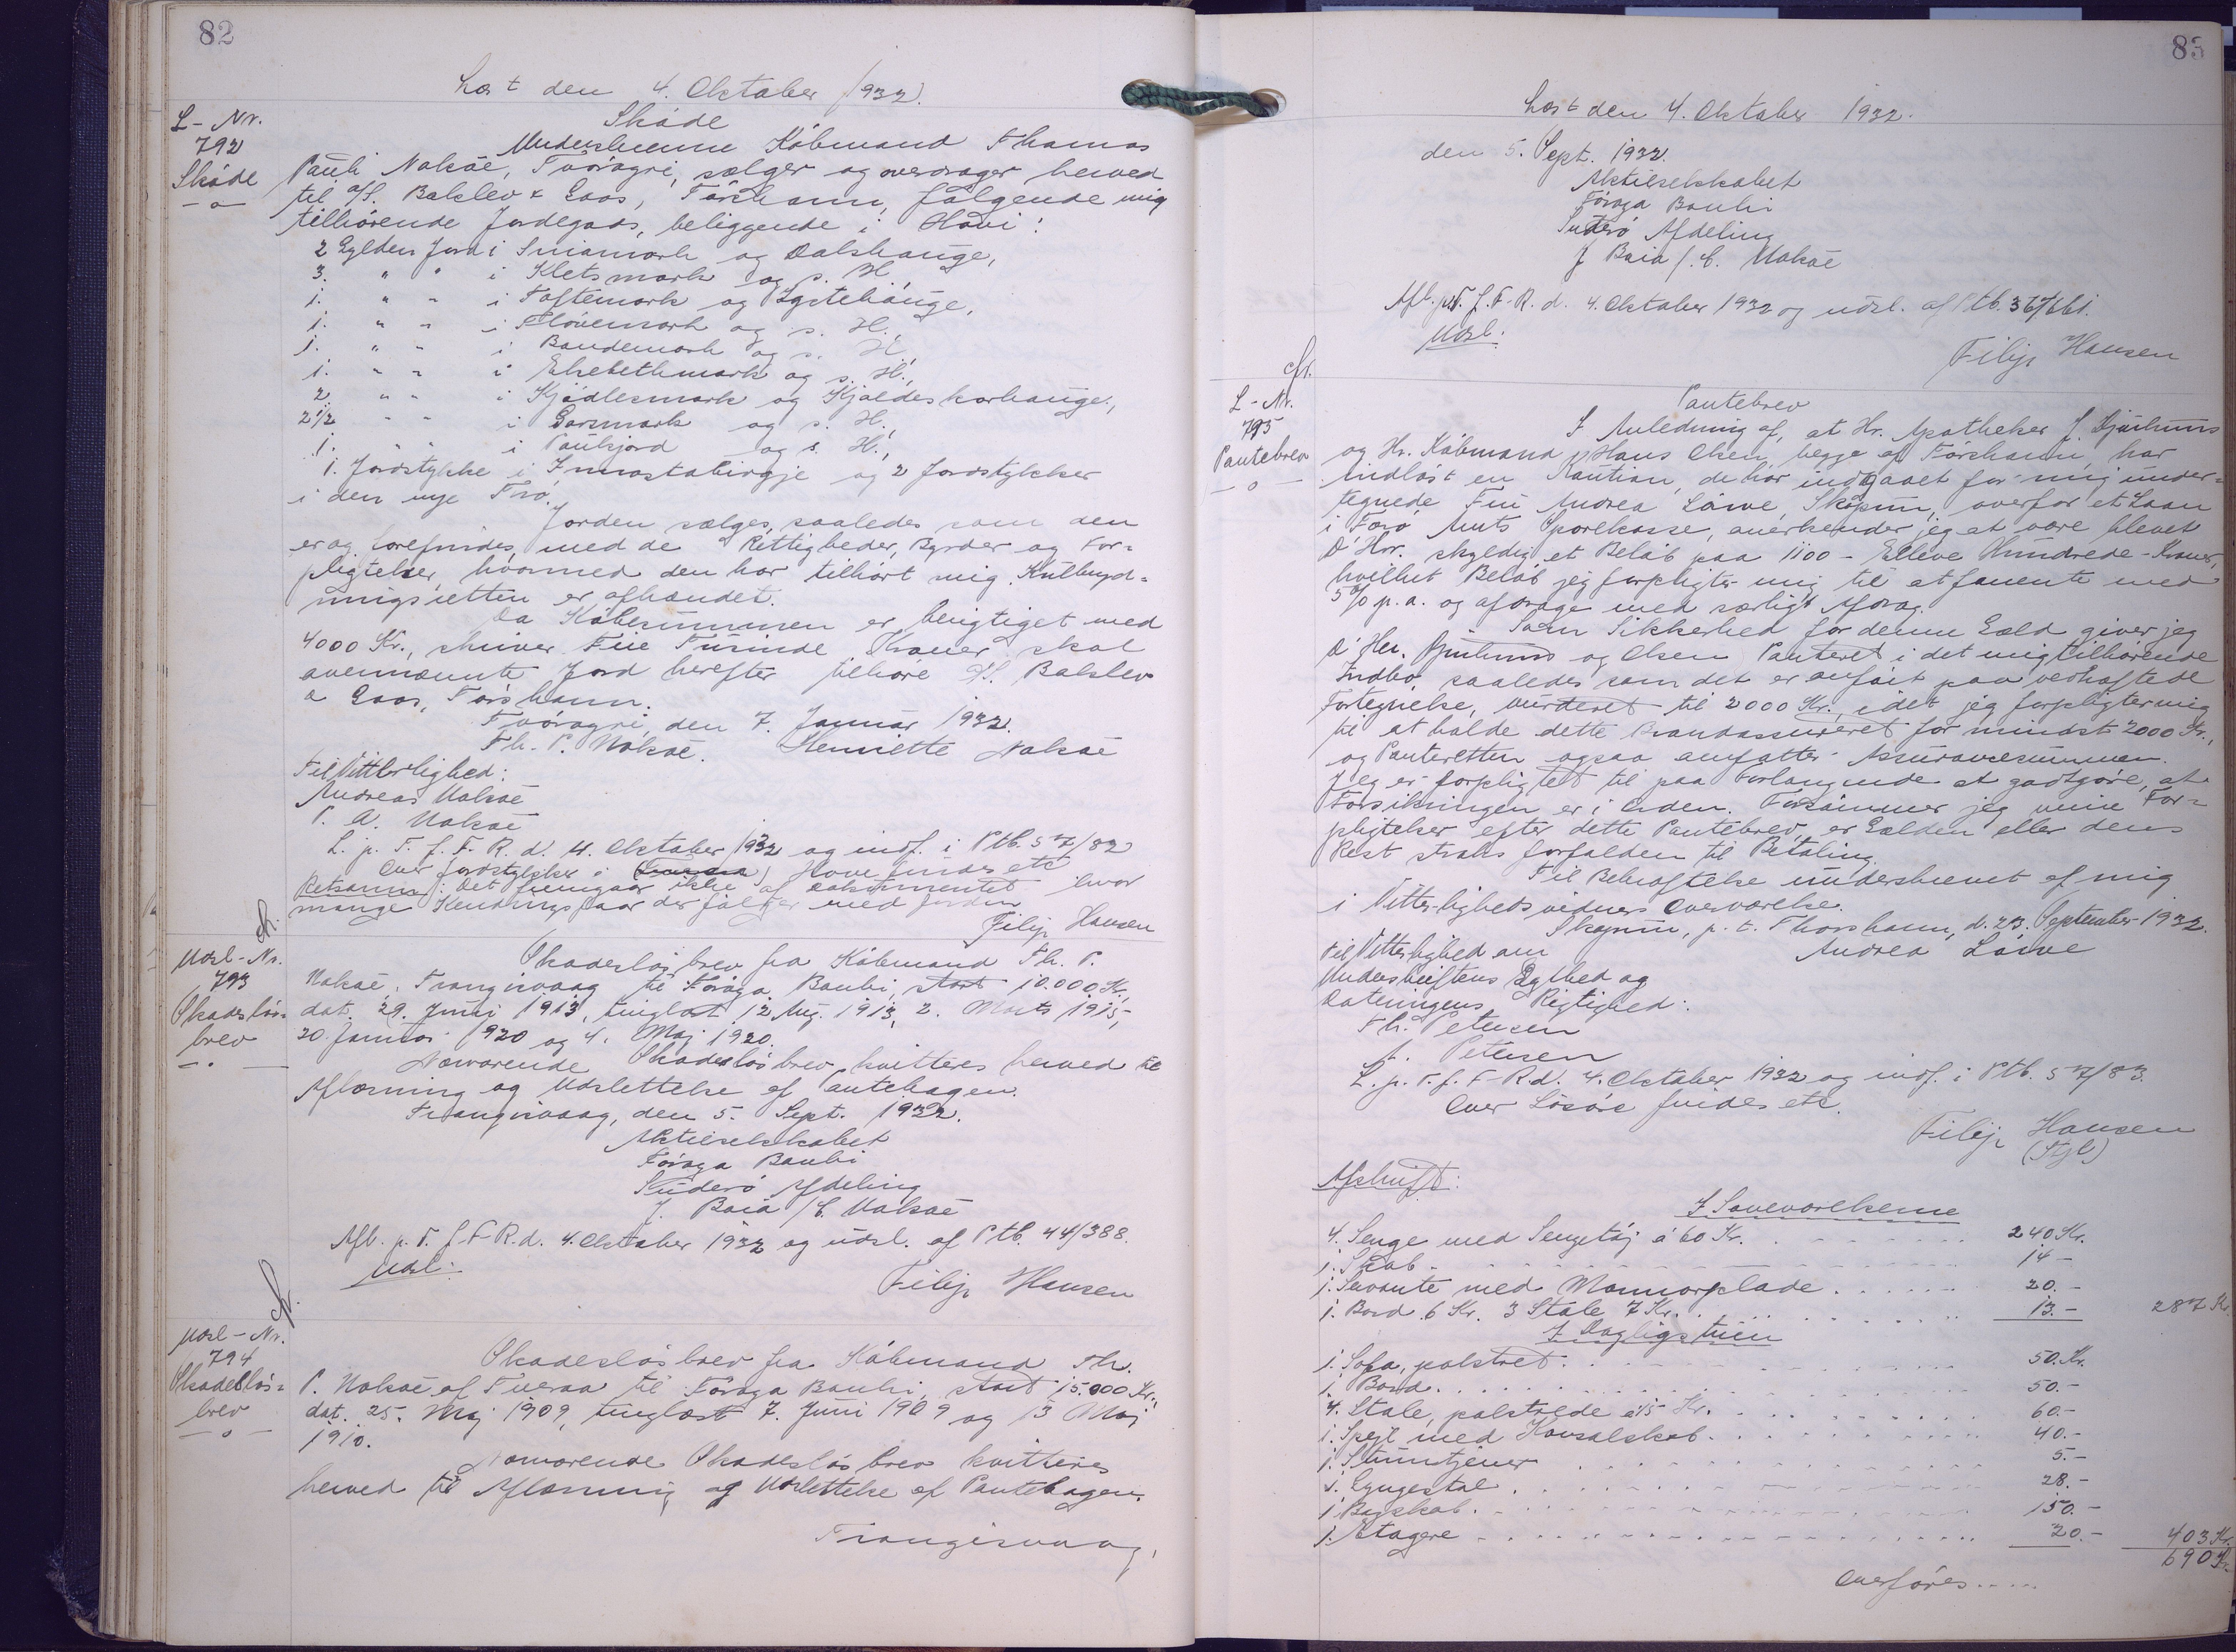 82
Læst den 4. Oktober 1932.
L-Nr.
792
Skøde
Skøde
Underskrevne Købmand Thomas
Pauli Nolsøe, Tvóragri, sælger og overdrager herved
til A/S. Balslev & Gaas, Tórshavn, følgende mig
tilhørende Jordegods, beliggende i Hóvi:
2 Gylden Jord i Smiamark og Dalshauge,
3. " " i Kletsmark og s. H.
1. " " i Toftemark og Ygstehauge,
1. " " i Flóvemark og s. H.
1. " " i Bondemark og s. H.
1. " " i Elsebethmark og s. H.,
2. " " i Kjødlesmark og Kjældeskorhauge,
2 1/2 " " i Garsmark og s. H.,
1. " " i Paulsjord og s. H.,
1. Jordstykke i Innastabirgje og 2 Jordstykker
i den nye Trø.
Jorden sælges, saaledes som den
er og forefindes, med de Rettigheder, Byrder og For=
pligtelser, hvormed den har tilhørt mig. Kulbryd=
ningsretten er afhændet.
Da Købesummen er berigtiget med
4000 Kr., skriver Fire Tusinde Kroner, skal
ovennævnte Jord herefter tilhøre A/S. Balslev
& Gaas, Tórshavn.
Tvóragri, den 7. Januar 1932.
Th. P. Nolsøe. Henriette Nolsøe
Til Vitterlighed:
Andreas Nolsøe
P. A. Nolsøe
L. p. T. f. F. R. d. 4. Oktober 1932 og indf. i Ptb. 57/82
Over Jordstykker i Hove findes etc
Retsanm: Det fremgaar ikke af Dokumentet hvor
mange Kendingsfaar der følger med Jorden
Filip Hansen
Udsl-Nr.
793
Skadesløs=
brev
Skadesløsbrev fra Købmand Th. P.
Nolsøe, Trangisvaag til Føroya Banki, stort 10.000 Kr.,
dat. 29. Juni 1913, tinglæst 12 Aug. 1913, 2. Marts 1915,
20. Januar 1920 og 4. Maj 1920.
Nærværende Skadesløsbrev kvitteres herved til
Aflæsning og Udslettelse af Pantebogen.
Trangisvaag, den 5. Sept. 1932.
Aktieselskabet
Føroya Banki
Suderø Afdeling
J. Baia /C. Nolsøe
Afl. p. T. f. F-R. d. 4. Oktober 1932 og udsl. af Ptb. 44/388.
Udsl:
Filip Hansen
Udsl-Nr.
794
Skadesløs=
brev
Skadesløsbrev fra Købmand Th.
P. Nolsøe af Tveraa til Føroya Banki, stort 15.000 Kr.,
dat. 25. Maj 1909, tinglæst 7. Juni 1909 og 13 Maj
1910.
Nærværende Skadesløsbrev kvitteres
herved til Aflæsning og Udslettelse af Pantebogen.
Trangisvaag,
83
Læst den 4. Oktober 1932.
den 5. Sept. 1932.
Aktieselskabet
Føroya Banki
Suderø Afdeling
J Baia /. C. Nolsøe
Afl. p. T. f. F-R. d. 4. Oktober 1932 og udsl. af Ptb. 36/661.
Udsl:
Filip Hansen
L-Nr.
795
Pantebrev
Pantebrev
I Anledning af, at Hr. Apotheker J. Djurhuus
og Hr. Købmand Hans Olsen, begge af Tórshavn, har
indløst en Kaution, de har indgaaet for mig under=
tegnede Fru Andrea Løwe, Skopun, overfor et Laan
i Færø Amts Sparekasse, anerkender jeg at være blevet
D'Hrr. skyldig et Beløb paa 1100 - Elleve Hundrede - Kroner,
hvilket Beløb jeg forpligter mig til at forrente med
5% p. a. og afdrage med særligt Afdrag.
Som Sikkerhed for denne Gæld giver jeg
D'Hrr. Djurhuus og Olsen Panteret i det mig tilhørende
Indbo, saaledes som det er anført paa vedhæftede
Fortegnelse, vurderet til 2000 Kr., idet jeg forpligter mig
til at holde dette brandassureret for mindst 2000 Kr.,
og Panteretten ogsaa omfatter Assurancesummen.
Jeg er forpligtet til paa Forlangende at godtgøre, at
Forsikringen er i Orden. Forsømmer jeg mine For=
pligtelser efter dette Pantebrev, er Gælden eller dens
Rest straks forfalden til Betaling.
Til Bekræftelse underskrevet af mig
i Vitterlighedsvidners Overværelse.
Skopun, p. t. Thorshavn, d. 23. September 1932.
Til Vitterlighed om Andrea Løwe
Underskriftens Ægthed og
Dateringens Rigtighed:
Th. Petersen
A. Petersen
L. p. T. f. F-R. d. 4. Oktober 1932 og indf. i Ptb. 57/83.
Over Løsøre findes etc.
Filip Hansen
(Stpl)
Afskrift:
I Soveværelserne
4. Senge med Sengetøj á 60 Kr. 240 Kr.
1. Skab 14 -
1. Servante med Marmorplade 20. -
1. Bord 6 Kr. 3 Stole 7 Kr. 13. - 287 Kr.
I Dagligstuen
1. Sofa, polstret 50. Kr.
1 Bord 50. -
4. Stole, polstrede á 15 Kr. 60. -
1. Spejl med Konsolskab 40. -
1. Stumtjener 5. -
1. Gyngestol 28. -
1 Bogskab 150. -
1. Etagere 20. - 403 Kr.
690 Kr.
Overføres